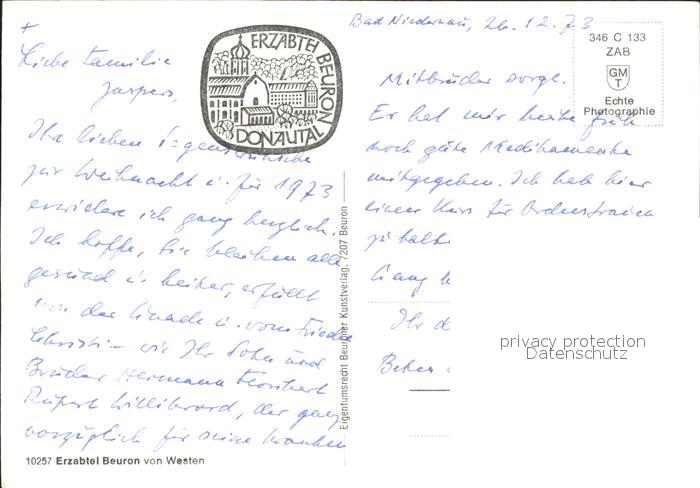 Bad Niedernau, 26. 12. 73
Liebe Familie
Jaspers,
Ihre lieben Segenswünsche
zur Weihnacht u. für 1973
erwidere ich ganz herzlich.
Ich hoffe, Sie bleiben alle
gesund u. heiter, erfüllt
von der Gnade u. vom Frieden
Christi – wie Ihr Sohn und
Bruder Hermann
Rupert Willibrord, der ganz
vorzüglich für seine kranken
10257 Erzabtei Beuron von Westen
ERZABTEI BEURON
DONAUTAL
Eigentumsrecht Beuroner Kunstverlag, 7207 Beuron
346 C 133
ZAB
GM
T
Echte
Photographie
Mitbrüder sorgt.
Er hat mir heute früh
noch gute Medikamente
mitgegeben. Ich hab hier
einen Kurs für Ordensfrauen
zu halte
Ganz
Ihr d
Beten
privacy protection
Datenschutz